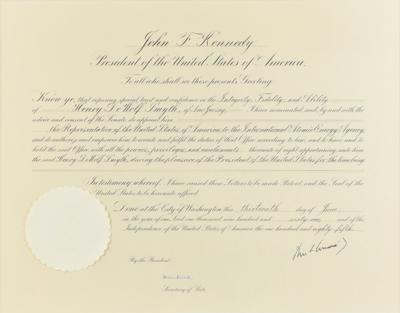 John F. Kennedy
President of the United States of America.
To all who shall see these presents, Greeting:
Know ye, that reposing special trust and confidence in the Integrity, Fidelity, and Ability
of Henry DeWolf Smyth, of New Jersey, I have nominated, and, by and with the
advice and consent of the Senate, do appoint him
the Representative of the United States of America to the International Atomic Energy Agency,
and do authorize and empower him to execute and fulfil the duties of that Office according to law, and to have and to
hold the said Office, with all the powers, privileges, and emoluments thereunto of right appertaining, unto him
the said Henry DeWolf Smyth, during the pleasure of the President of the United States for the time being.
In testimony whereof, I have caused these Letters to be made Patent, and the Seal of the
United States to be hereunto affixed.
Done at the City of Washington this thirteenth day of June,
in the year of our Lord one thousand nine hundred and sixty-one, and of the
Independence of the United States of America the one hundred and eighty-fifth.
By the President:
Secretary of State.